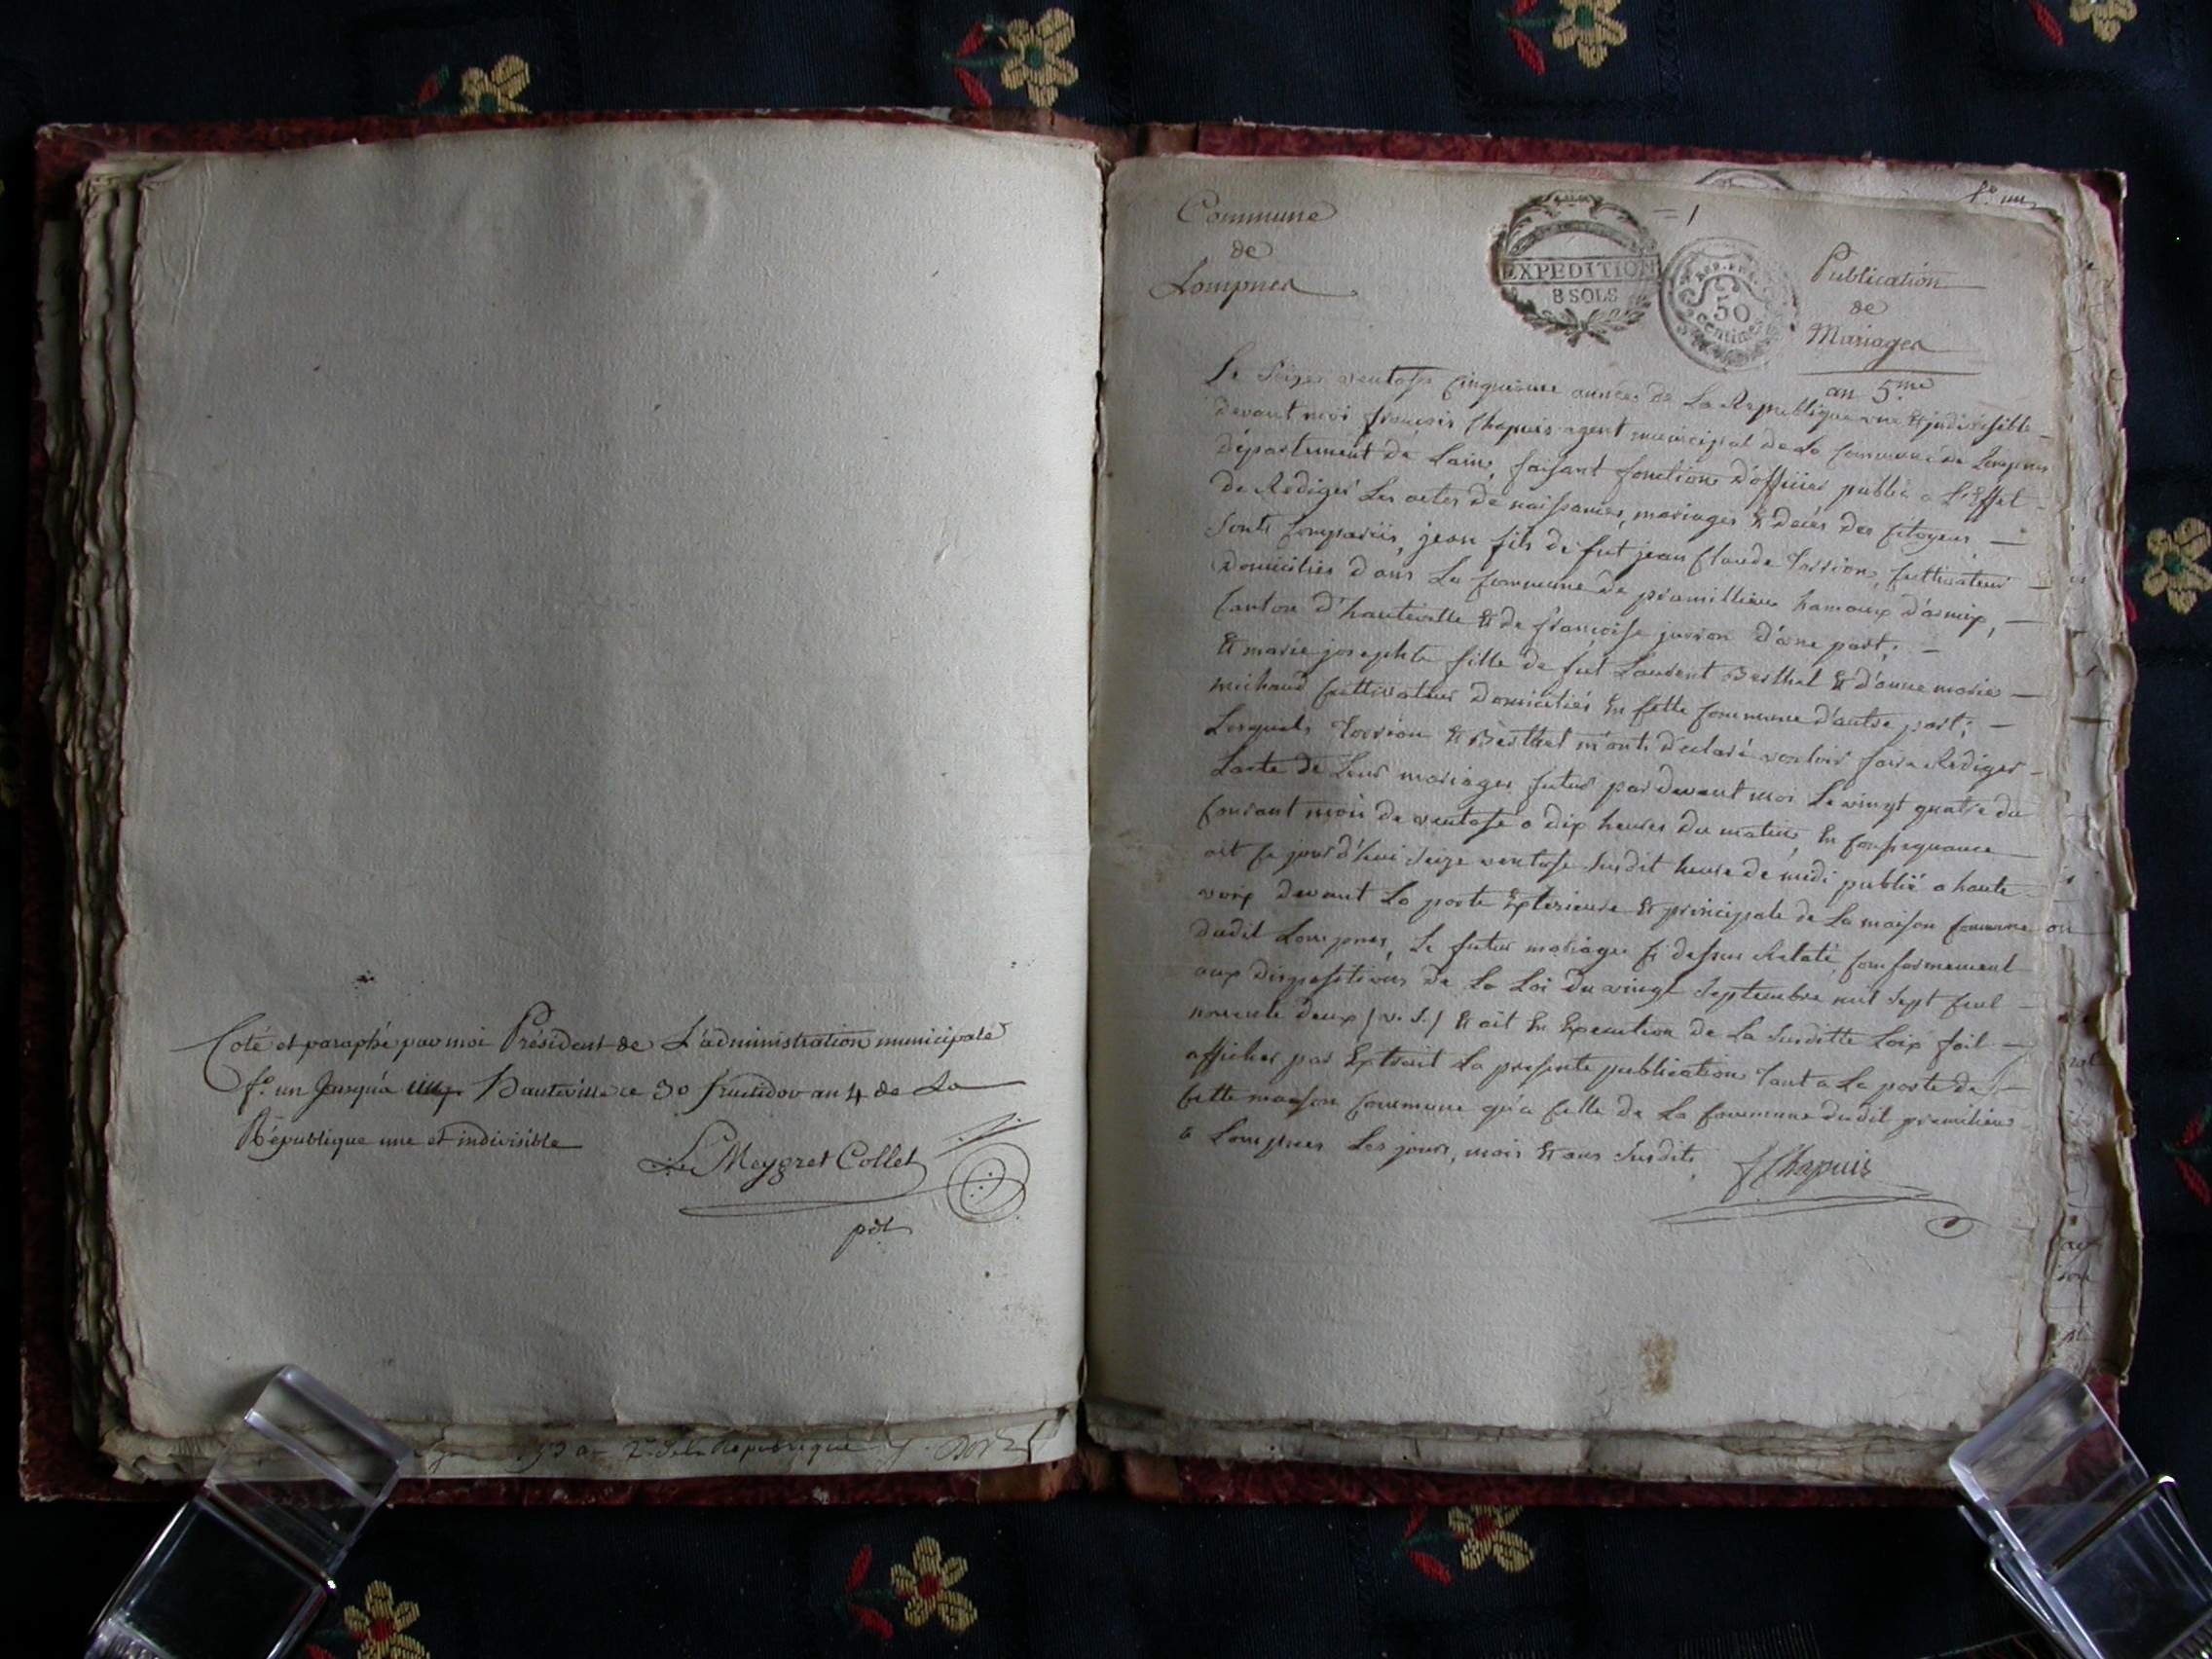 Coté et paraphé par moi Président de L'administration municipale
f.º un Jusqu'à Hauteville ce 30 fructidor an 4 de La
République une et indivisible
Le Meygret Collet
pdt
2e de la République
Commune
de
Lompnes
EXPEDITION
8 SOLS
= 1
REP. FRA.
50
centimes
f.º un
Publication
de
Mariages
an 5.me
Le seize ventose cinquieme année de La Republique une et jndivisible
devant moi françois Chapuis agent municipal de La Commune de Lompnes
département de Lain, faisant fonctions d'officier public a L'Effet
de Rediger Les actes de naissances, mariages Et decès des citoyens,
sont comparüs, jean fils de fut jean Claude torrion, cultivateur
domiciliés dans La Commune de prémillieu hamaux d'armix,
canton d'hauteville Et de françoise d'une part;
Et marie josephte fille de fut Laurent Berthet Et d'anne marie
michaud cultivateur domiciliés En cette commune d'autre part;
Lesquels torrion Et Berthet m'ont déclaré vouloir faire Rediger
Lacte de Leur mariages futur par devant moi Le vingt quatre du
courant mois de ventose a dix heures du matin, En consequance
ait ce jourd'hui seize ventose susdit heure de midi publié a haute
voix devant La porte Extérieure Et principale de La maison commune
dudit Lompnes, Le futur mariage ci dessus Relaté, conformement
aux dispositions de La Loi du vingt septembre mil sept cent
nonente deux (v. s.) Et ait En Execution de La susditte Loix fait
afficher par Extrait La presente publication tant a La porte de
cette maison commune qu'a celle de La commune dudit premilieu
a Lompnes Les jours, mois Et ans susdits,
f Chapuis